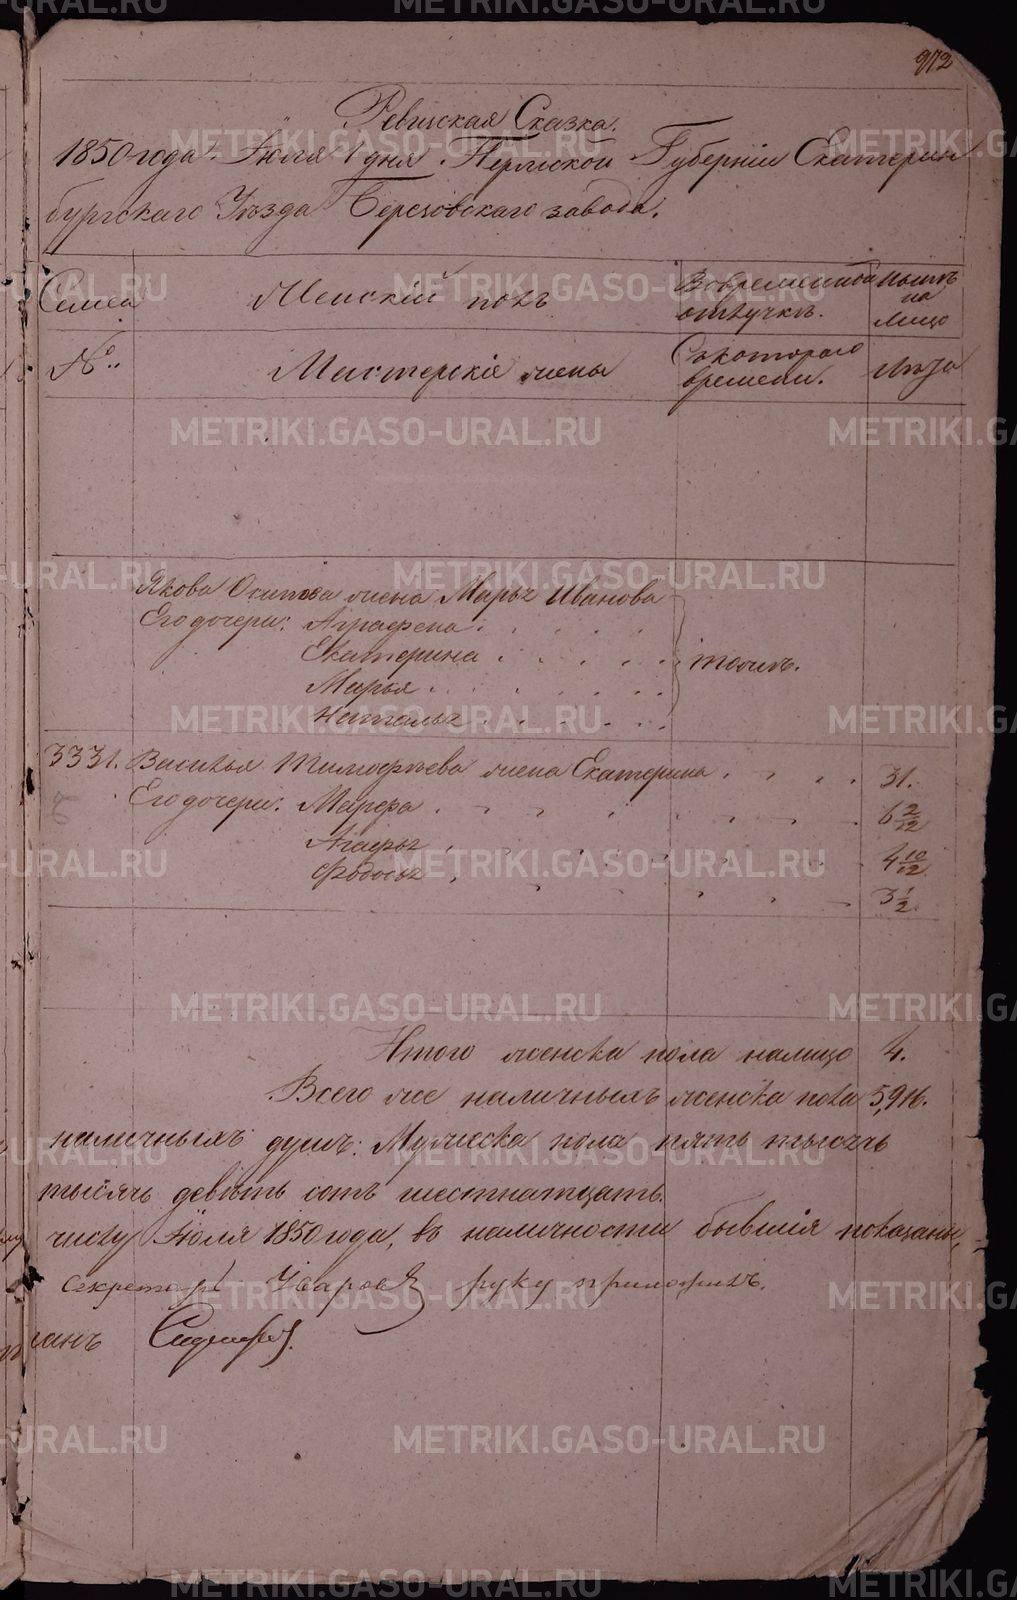 972
Ревизская Сказка.
1850 года Июля 1 дня. Пермской Губернiи Екатерин
бургскаго Уѣзда Березовскаго завода.
Семья Женскiй полъ Вовременной отлучкѣ. Нынѣ на лицо
№ Мастерскiе жены Съкотораго времени. Лѣта
Якова Осипова жена Марья Иванова
Его дочери: Аграфена
Екатерина тожъ.
Марья
Наталья
3331. Василья Тимофѣева жена Екатерина 31.
Его дочери: Марфа 6 2/12
Агафья 4 10/12
Федосья 3 1/2.
Итого женска пола налицо 4.
Всего же наличныхъ женска пола 5,916.
наличныхъ душъ: Мужеска пола пять тысячь
тысячь девять сотъ шестнатцать.
числу Июля 1850 года, въ наличности бывшiя показаны,
Секретарь Уваровъ руку приложилъ.
METRIKI.GASO-URAL.RU